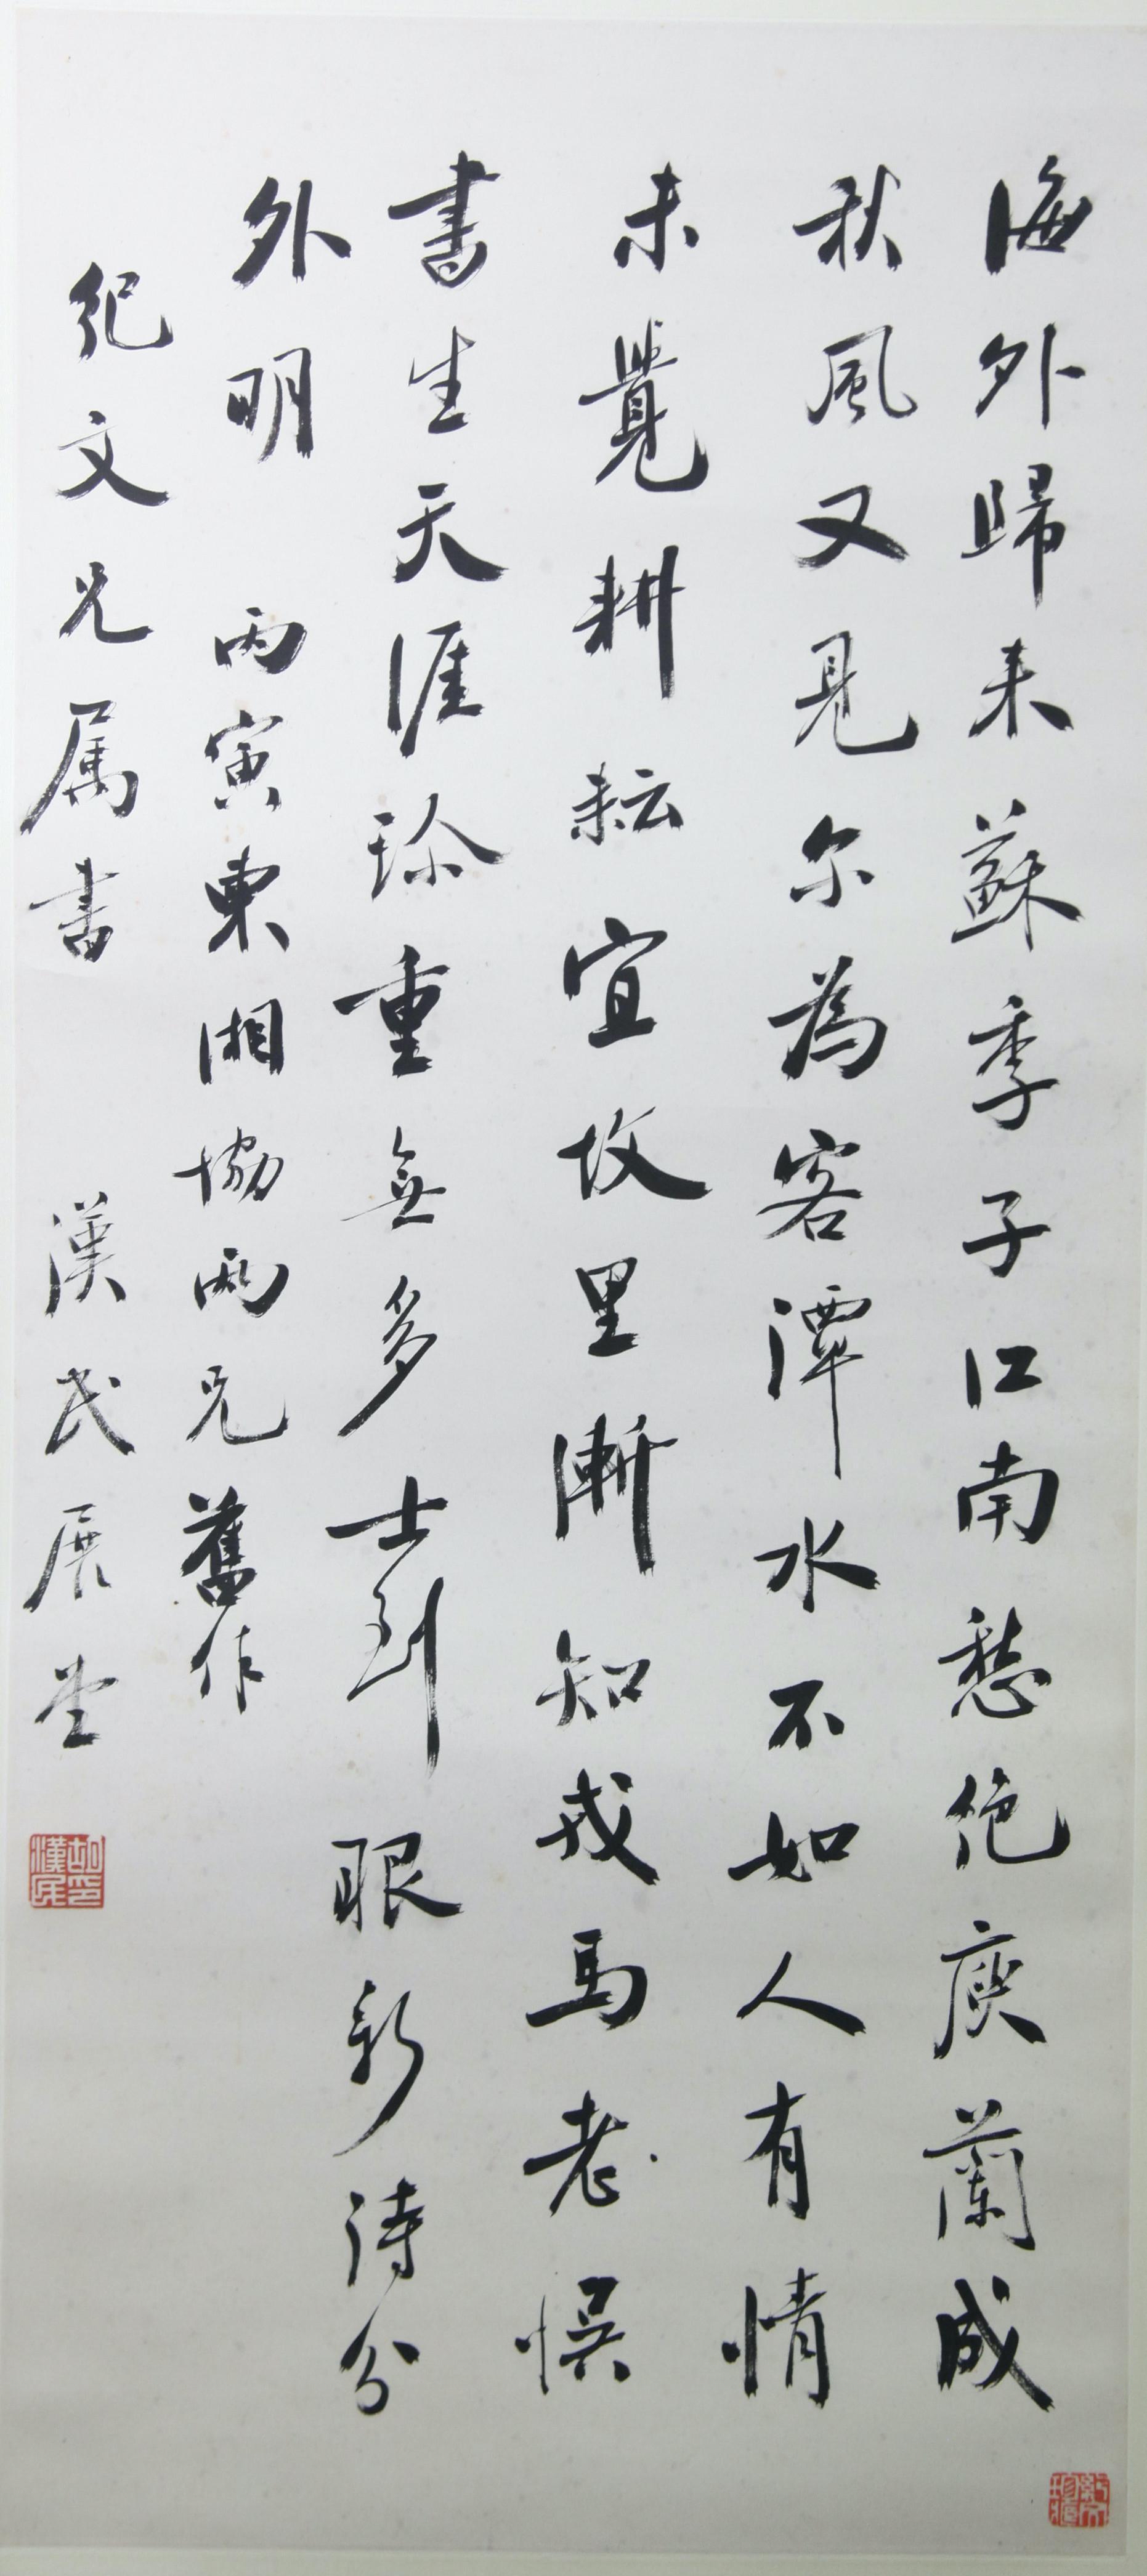 海外歸来蘇季子江南愁絶庾蘭成
秋風又見尔為客潭水不如人有情
未覺耕耘宜故里漸知戎馬老悞
書生天涯珎重無多士到眼新詩分
外明 丙寅東湘協兩兄舊作
紀文兄属書 漢民展堂
胡漢民印